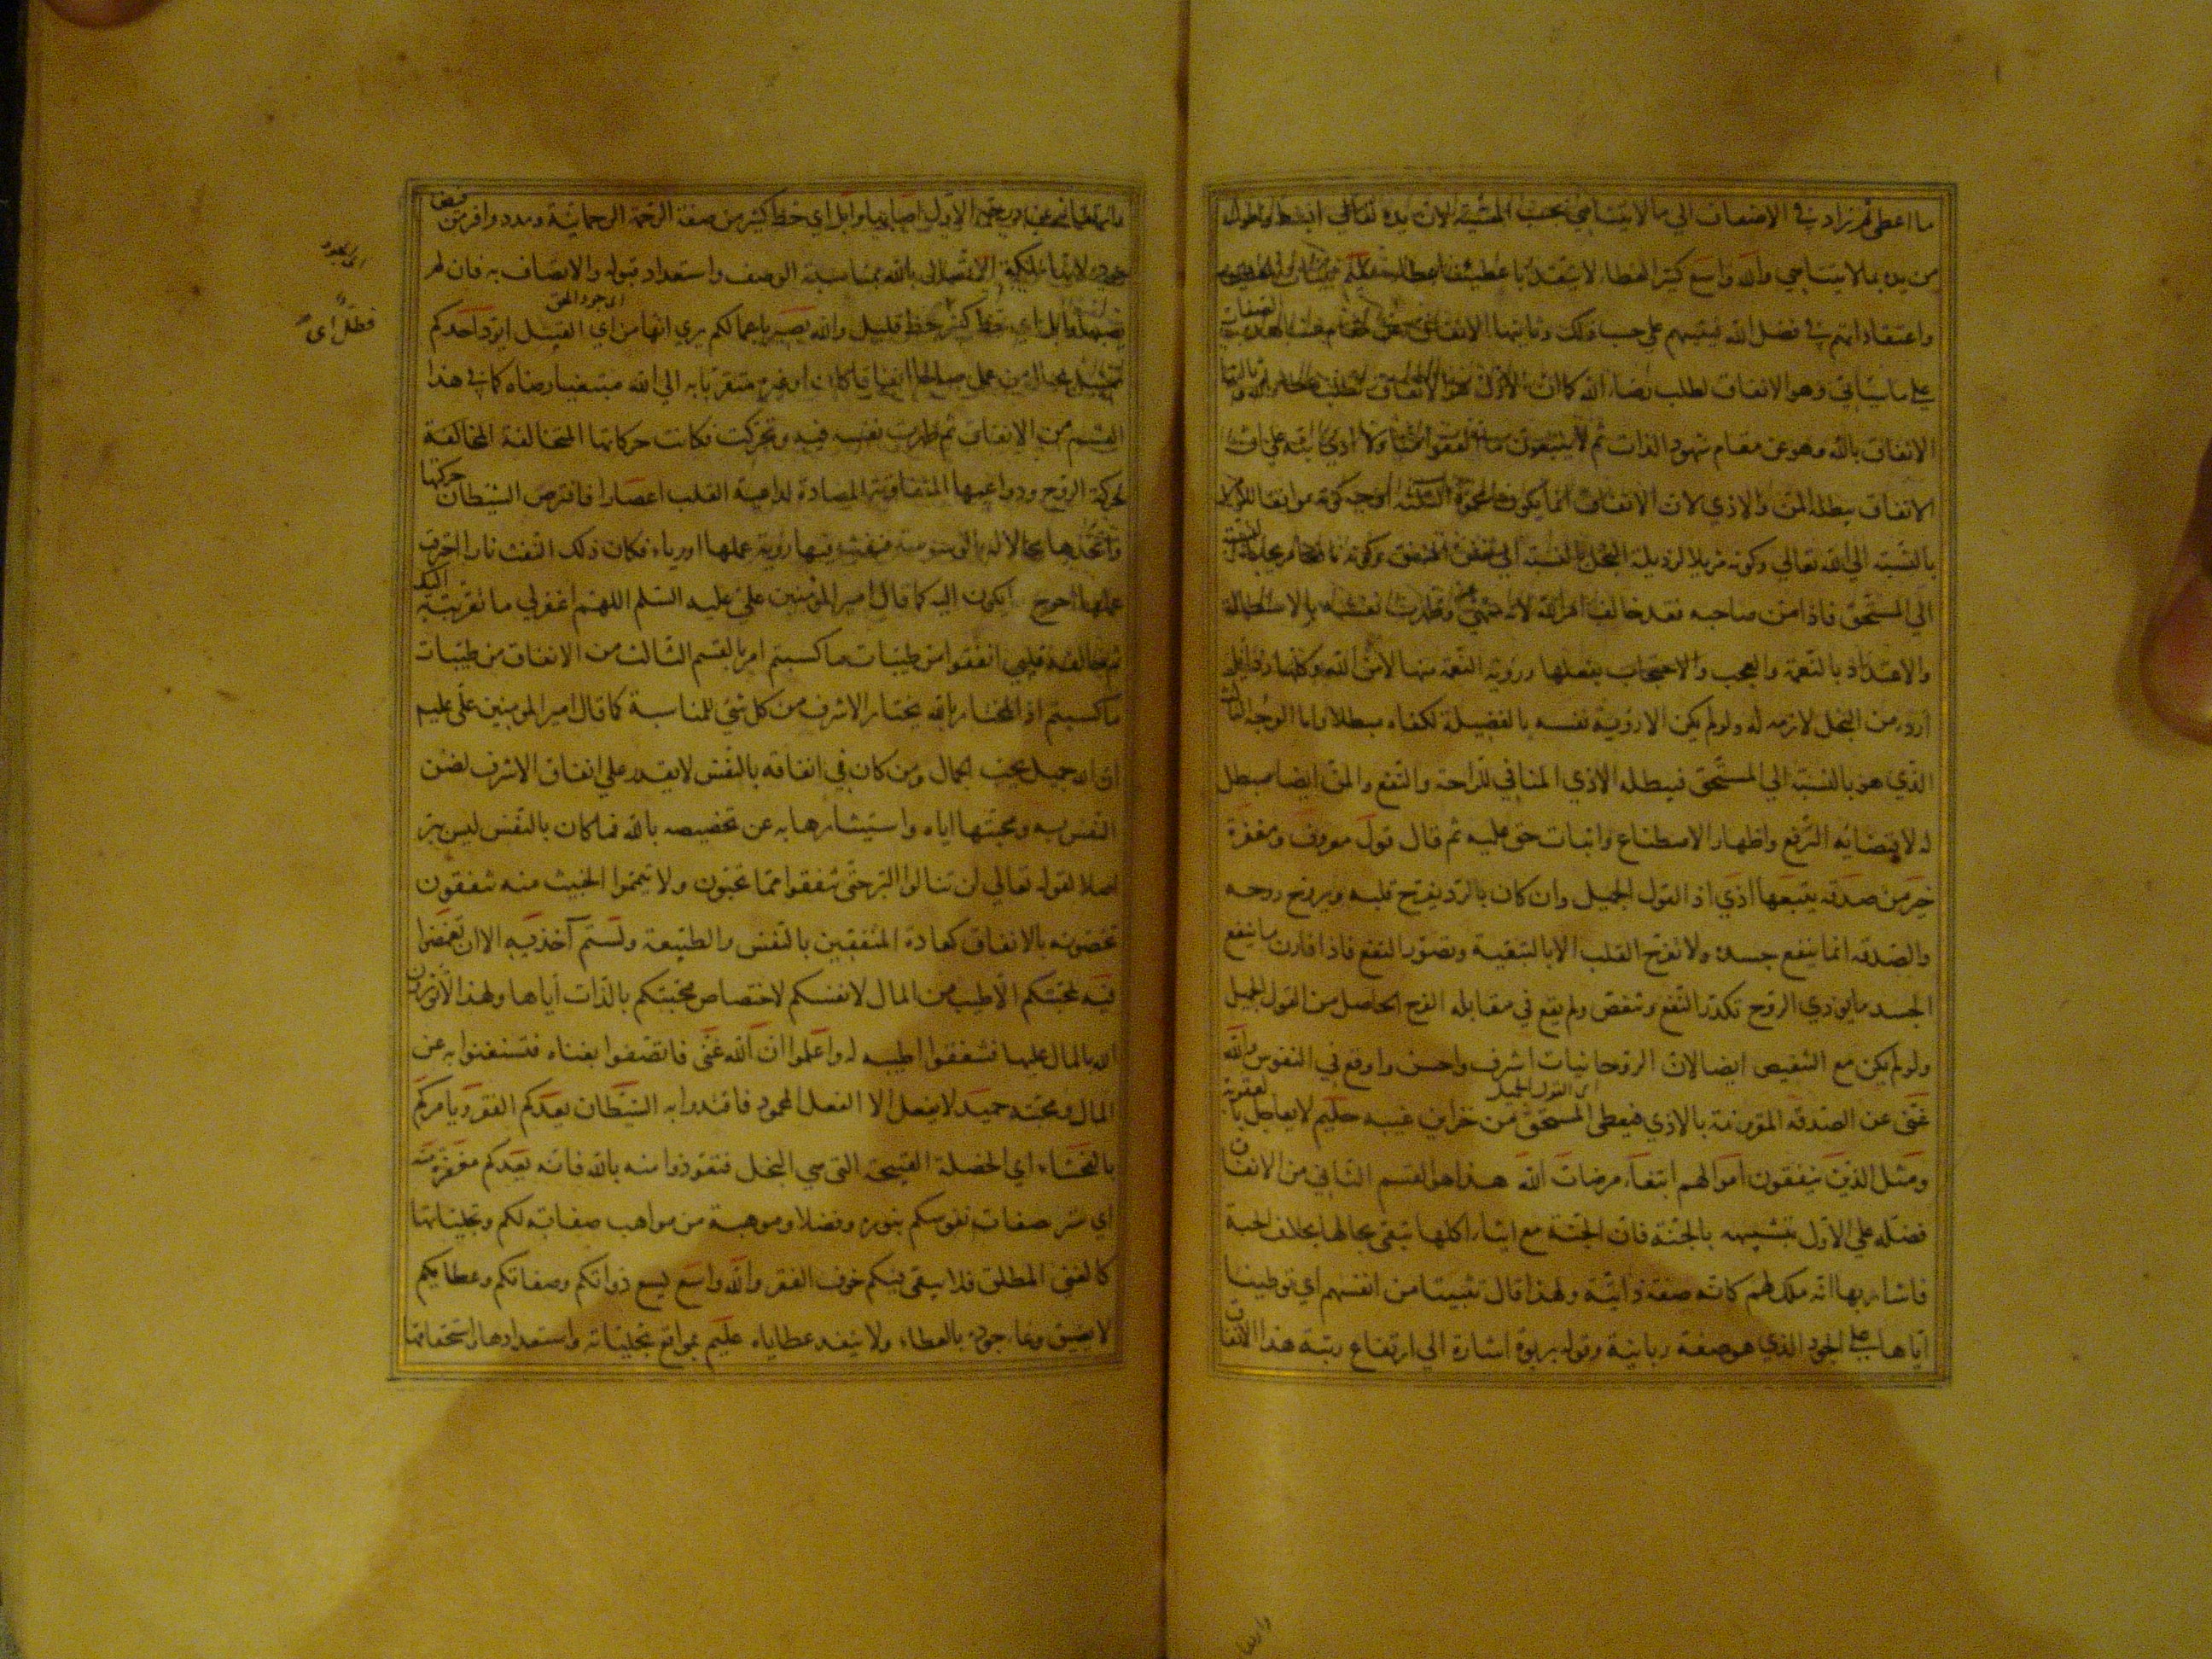 ما اعطي ثم زاد في الاضعاف الي ما لا يتناهي بحسب المشيئة لان يده تعالي ابسط واطول
من يده بما لا يتناهي والله واسع كثير العطاء لا يتقدر باعطيتنا
واعتقاداتهم في فضل الله فيثيبهم علي حسب ذلك وثانيتها الانفاق عن مقام مشاهدة الصفات
علي ما سيأتي وهو الانفاق لطلب رضاء الله كما ان الاول هو الانفاق لطلب
الانفاق بالله وهو عن مقام شهود الذات ثم لا يتبعون ما انفقوا منا ولا اذي نبه علي ان
الانفاق يبطله المن والاذي لان الانفاق انما يكون محمودا لثلثة اوجه كونه موافقا للامر
بالنسبة الي الله تعالي وكونه مزيلا لرذيلة البخل بالنسبة الي نفس المنفق وكونه نافعا
الي المستحق فاذا من صاحبه فقد خالف امر الله لانه منهي وظهرت نفسه بالاستطالة
والاعتداد بالنعمة والعجب والاحتجاب بفعلها ورؤية النعمة منها لا من الله وكلها رذايل
اردء من البخل لازمه له ولو لم يكن الا رؤية نفسه بالفضيلة لكفاه مبطلا واما الوجه الثالث
الذي هو بالنسبة الي المستحق فيبطله الاذي المنافي للراحة والنفع والمن ايضا مبطل
له لاقتضائه الترفع واظهار الاصطناع واثبات حق عليه ثم قال قول معروف ومغفرة
خير من صدقه يتبعها اذي اذ القول الجميل وان كان بالرد يفرح قلبه ويروح روحه
والصدقه انما ينفع جسده ولا تفرح القلب الا بالتبعية وتصور النفع فاذا قارن ما ينفع
الجسد ما يوذي الروح تكدر النفع وتنغص ولم يقع في مقابله الفرح الحاصل من القول الجميل
ولو لم يكن مع التنغيص ايضا لان الروحانيات اشرف واحسن واوقع في النفوس والله
اي القول الجميل
غني عن الصدقه المقرونة بالاذي فيعطي المستحق من خزاين غيبه حليم لا يعاجل بالعقوبة
ومثل الذين ينفقون اموالهم ابتغاء مرضات الله هذا هو القسم الثاني من الانفاق
فضله علي الاول بتشبيهه بالجنة فان الجنة مع ايتاء اكلها تبقي بحالها بخلاف الحبة
فاشار بها انه ملك لهم كانه صفة ذاتية ولهذا قال تثبيتا من انفسهم اي توطينا
اياها علي الجود الذي هو صفة ربانية وقوله بربوة اشارة الي ارتفاع رتبة هذا الانفاق
عن درجة الاول اصابها وابل اي حظ كثير من صفة الرحمة الرحمانية ومدد وافر من فيض
جوده لانها ملكة الاتصال بالله بمناسبة الوصف واستعداد قبوله والاتصاف به فان لم
يصبها وابل اي حظ كثير حظ قليل والله بصير باعمالكم يري انها من اي القبيل ايود احدكم
فطل اي
تمثيل بحال من عمل صالحا انفاقا كان او غيره متقربا به الي الله مبتغيا رضاه كما في هذا
القسم من الانفاق ثم ظهرت نفسه فيه وتحركت فكانت حركاتها المتخالفة المخالفة
لحركة الروح ودواعيها المتفاوتة المضادة لداعية القلب اعصارا فافترص الشيطان حركتها
واتخذها مجالا له بالوسوسة فنفث فيها رؤية عملها او رياء فكان ذلك النفث نارا احرقت
عملها احوج ما يكون اليه كما قال امير المؤمنين علي عليه السلم اللهم اغفر لي ما تقربت به اليك
ثم خالفه قلبي انفقوا من طيبات ما كسبتم امر بالقسم الثالث من الانفاق من طيبات
ما كسبتم اذ المختار بالله يختار الاشرف من كل شي للمناسبة كما قال امير المومنين علي عليه
ان الله جميل يحب الجمال ومن كان في انفاقه بالنفس لا يقدر علي انفاق الاشرف لضن
النفس به ومحبتها اياه واستيثارها به عن تخصيصه بالله فما كان بالنفس ليس ببر
اصلا لقوله تعالي لن تنالوا البر حتي تنفقوا مما تحبون ولا تيمموا الخبيث منه تنفقون
تخصونه بالانفاق كعادة المنفقين بالنفس والطبيعة ولستم آخذيه الا ان تغمضوا
فيه لمحبتكم الاطيب من المال لانفسكم لاختصاص محبتكم بالذات اياها ولهذا لا تؤثرون
الله بالمال عليها فتنفقوا اطيبه له واعلموا ان الله غني فاتصفوا بغناه فتستغنوا به عن
المال ومحبته حميد لا يفعل الا الفعل المحمود فاقتدوا به الشيطان يعدكم الفقر ويامركم
بالفحشاء اي الخصلة القبيحة التي هي البخل فتعوذوا منه بالله فانه يعدكم مغفرة منه
اي ستر صفات نفوسكم بنوره وفضلا وموهبة من مواهب صفاته لكم وتجلياتها
كالغني المطلق فلا يبقي فيكم خوف الفقر والله واسع يسع ذواتكم وصفاتكم وعطاياكم
لا يضيق وعاء جوده بالعطاء ولا ينفد عطاياه عليم بمواقع تجلياته واستعدادها واستحقاقها